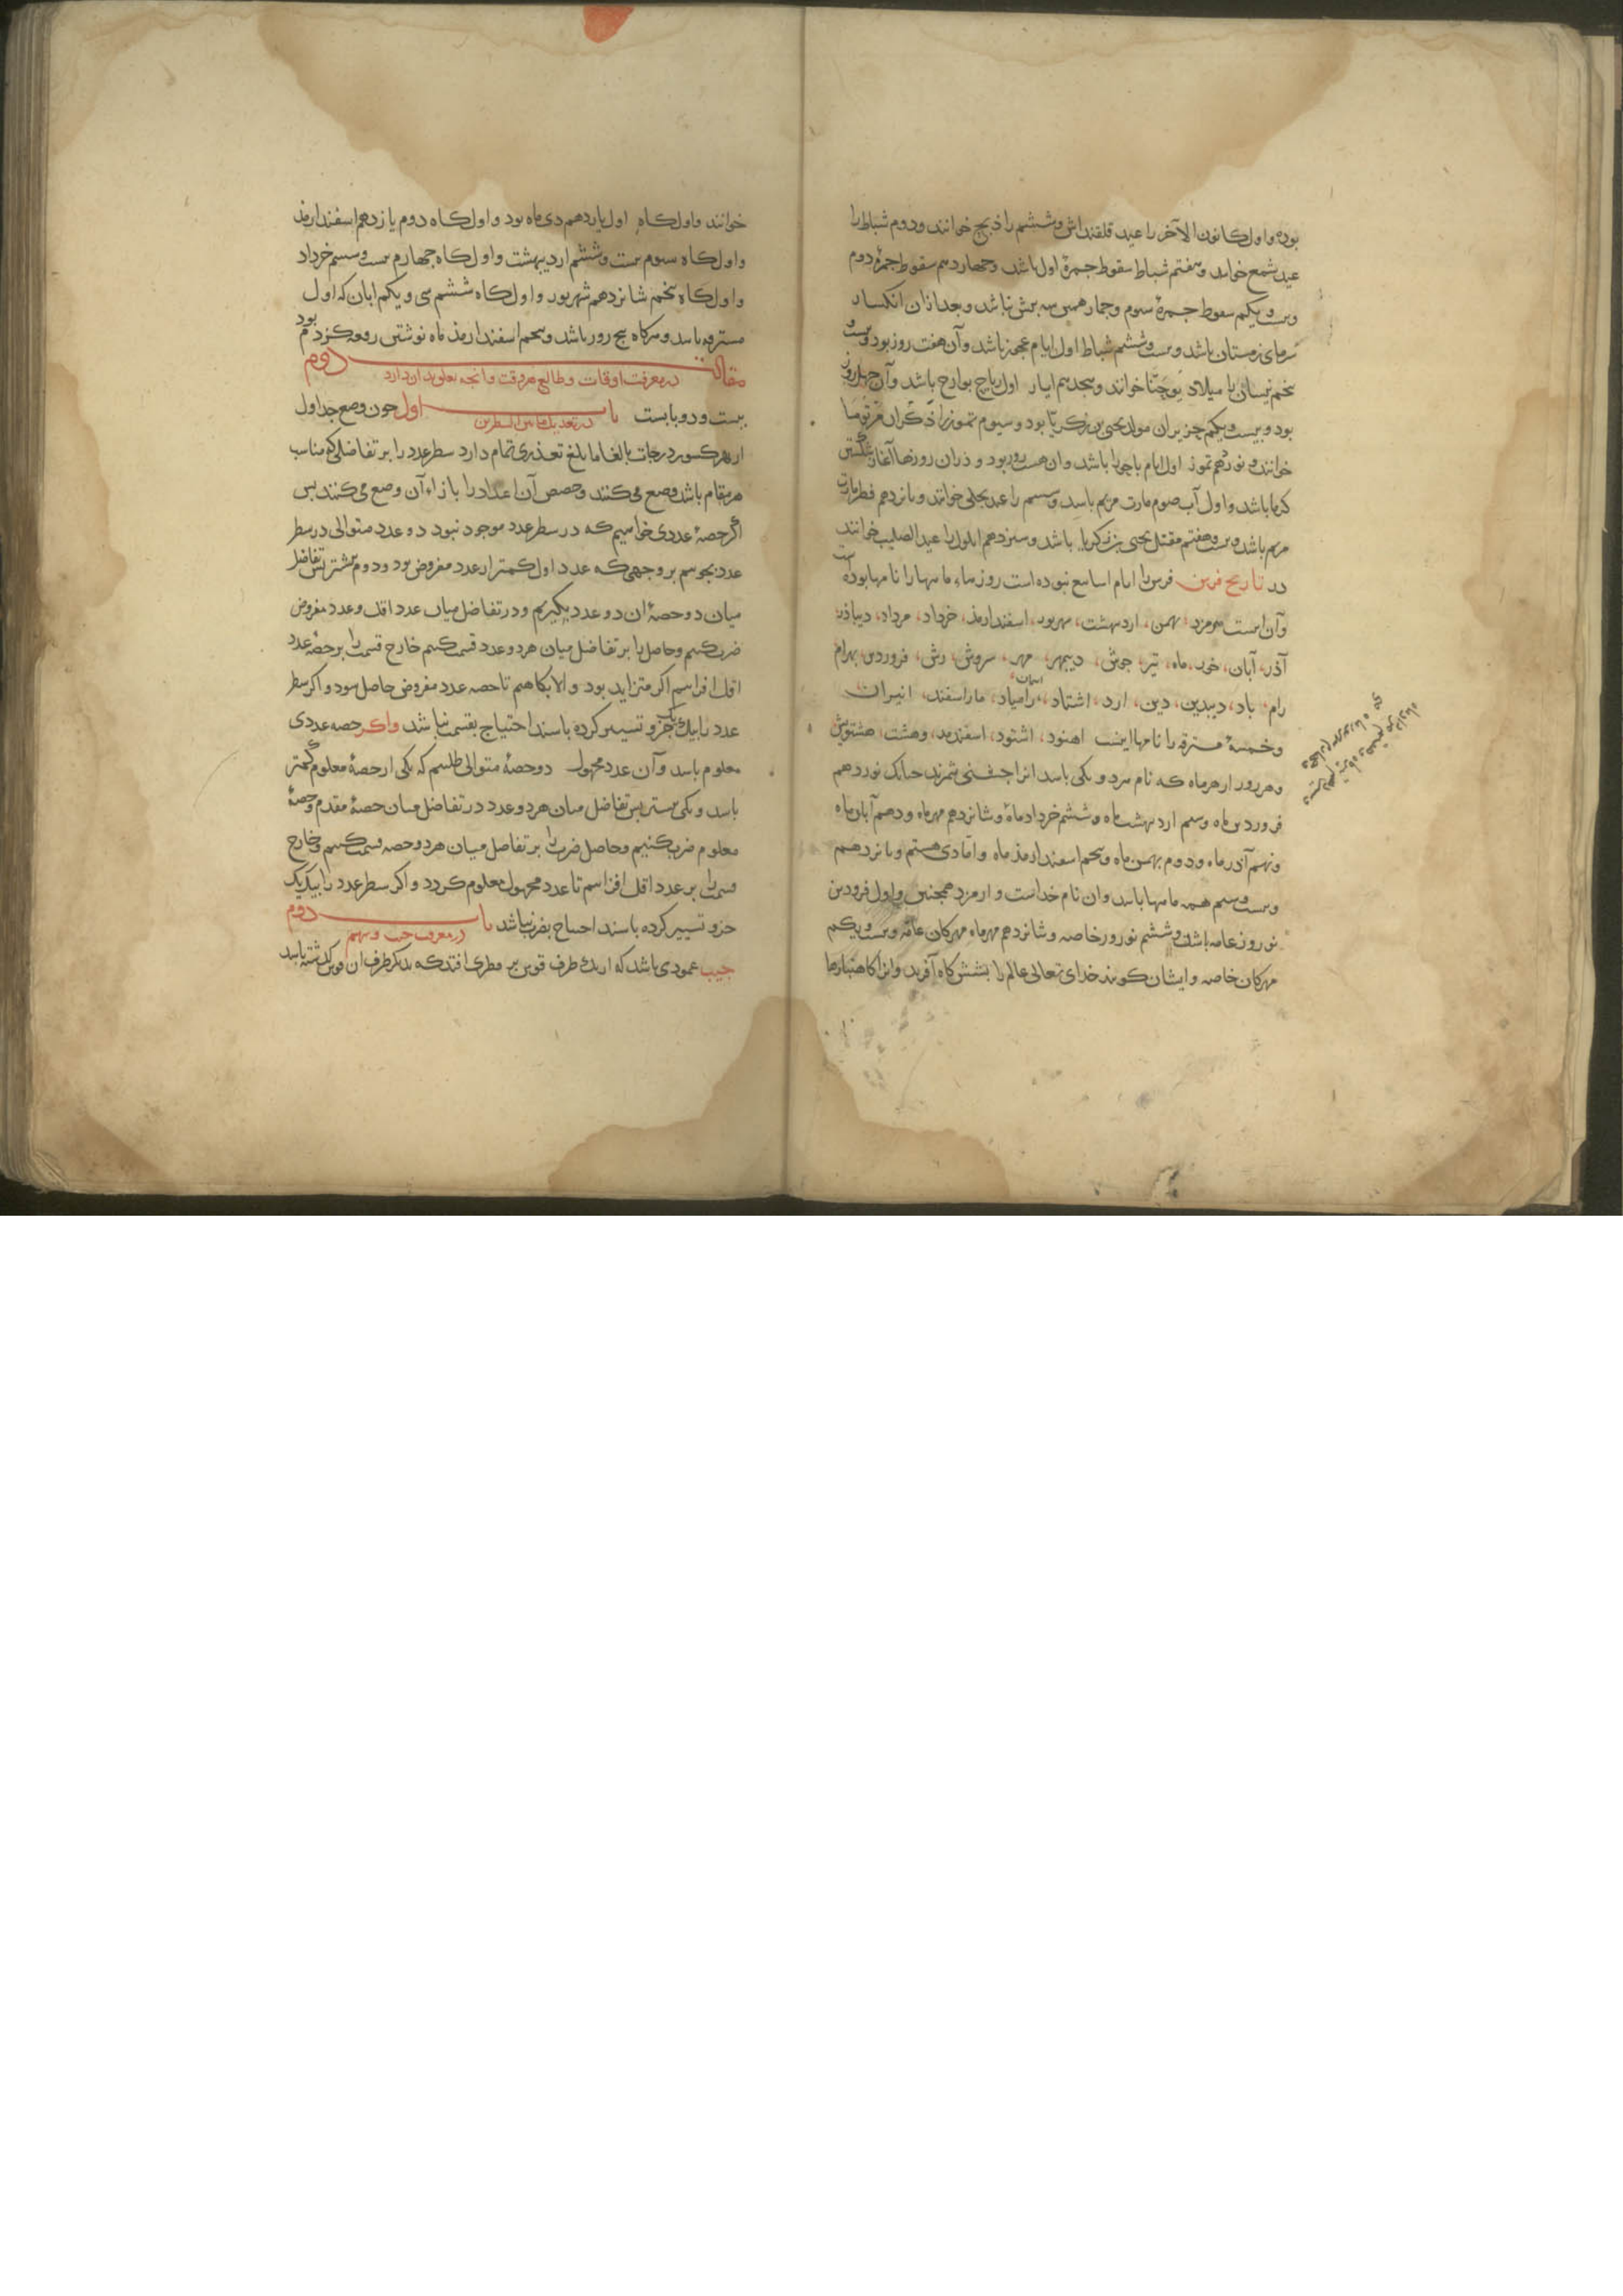 بوده و اول کانون الآخر را عید قلقنداس و ششم را ذبح خوانند و دوم شباط را
عید شمع خوانند و هفتم شباط سقوط جمرهٔ اول باشد و چهاردهم سقوط جمرهٔ دوم
و بیست و یکم سقوط جمرهٔ سوم و جمار همین سه بیش نباشد و بعد ازان انکسار
سرمای زمستان باشد و بیست و ششم شباط اول ایام عجوز باشد و آن هفت روز بود و بیست و
پنجم نیسان را میلاد یوحنا خوانند و هجدهم ایار اول باشد و آن چهل روز
بود و بیست و یکم حزیران مولد یحیی بن زکریا بود و سیوم تموز را ذکران مرتوما
خوانند و نوزدهم تموز اول ایام باحورا باشد و ان هشت روز بود و دران روزها آغاز شکستن
گرما باشد و اول آب صوم مارت مریم باشد و ششم را عید تجلی خوانند و پانزدهم فطر مارت
مریم باشد و بیست و هفتم مقتل یحیی بن زکریا باشد و سیزدهم ایلول را عید الصلیب خوانند
در تاریخ فرس فرس را ایام اسابیع نبوده است روزهاء ماهها را نامها بوده است
و آن اینست هرمزد، بهمن، اردبهشت، شهریور، اسفندارمذ، خرداد، مرداد، دیباذر
آذر، آبان، خور، ماه، تیر، جوش، دیبمهر، مهر، سروش، رش، فروردین، بهرام
رام، باد، دیبدین، دین، ارد، اشتاد، اسمان، رامیاد، ماراسفند، انیران
و خمسهٔ مسترقه را نامها اینست اهنود، اشتود، اسفندمد، وهشت، هشتویش
و هر روز از هر ماه که نام مرد و یکی باشد انرا جشنی شمرند چنانک نوزدهم
فروردین ماه و سیم اردبهشت ماه و ششم خرداد ماه و شانزدهم مهر ماه و دهم آبان ماه
و نهم آذر ماه و دوم بهمن ماه و پنجم اسفندارمذ ماه و اما دی هشتم و پانزدهم
و بیست و سیم همه ماهها باشد و ان نام خداست و ارمزد همچنین و اول فروردین
نوروز عامه باشد و ششم نوروز خاصه و شانزدهم مهر ماه مهرکان عامه و بیست و یکم
مهرکان خاصه و ایشان کویند خدای تعالی عالم را بشش کاه آفرید و انرا کاهنبارها
خوانند و اول کاه اول یازدهم دی ماه بود و اول کاه دوم یازدهم اسفندارمذ
و اول کاه سیوم بیست و ششم اردیبهشت و اول کاه چهارم بیست و ششم خرداد
و اول کاه پنجم شانزدهم شهریور و اول کاه ششم سی و یکم ابان که اول
مسترقه باشد و هر کاه پنج روز باشد و پنجم اسفندارمذ ماه نوشتن رقعه کژدم بود
مقالت دوم
در معرفت اوقات و طالع هر وقت و آنچه تعلق بدان دارد
بیست و دو بابست باب اول چون وضع جداول
در تعدیل ما بین السطرین
از بهر کسور درجات بالغا ما بلغ تعذری تمام دارد سطر عدد را بر تفاضلی که مناسب
هر مقام باشد وضع می‌کنند و حصص آن اعداد را بازاء آن وضع می‌کنند پس
اگر حصهٔ عددی خواهیم که در سطر عدد موجود نبود دو عدد متوالی در سطر
عدد بجوییم بر وجهی که عدد اول کمتر از عدد مفروض بود و دوم بیشتر پس تفاضل
میان دو حصهٔ ان دو عدد بگیریم و در تفاضل میان عدد اقل و عدد مفروض
ضرب کنیم و حاصل را بر تفاضل میان هر دو عدد قسمت کنیم خارج قسمت را بر حصهٔ عدد
اقل افزاییم اکر متزاید بود و الا بکاهیم تا حصه عدد مفروض حاصل شود و اکر سطر
عدد را بیک یک جزو تسییر کرده باشند احتیاج بقسمت نباشد واکر حصه عددی
معلوم باشد و آن عدد مجهول دو حصهٔ متوالی طلبیم که یکی از حصهٔ معلوم کمتر
باشد و یکی بیشتر پس تفاضل میان هر دو عدد در تفاضل میان حصهٔ مقدم و حصهٔ
معلوم ضرب کنیم و حاصل ضرب را بر تفاضل میان هر دو حصه قسمت کنیم و خارج
قسمت را بر عدد اقل افزاییم تا عدد مجهول معلوم کردد و اکر سطر عدد را بیک یک
جزو تسییر کرده باشند احتیاج بضرب نباشد باب دوم
در معرفت جیب و سهم
جیب عمودی باشد که از یک طرف قوس بر قطری افتد که بدیکر طرف ان قوس کذشته باشد